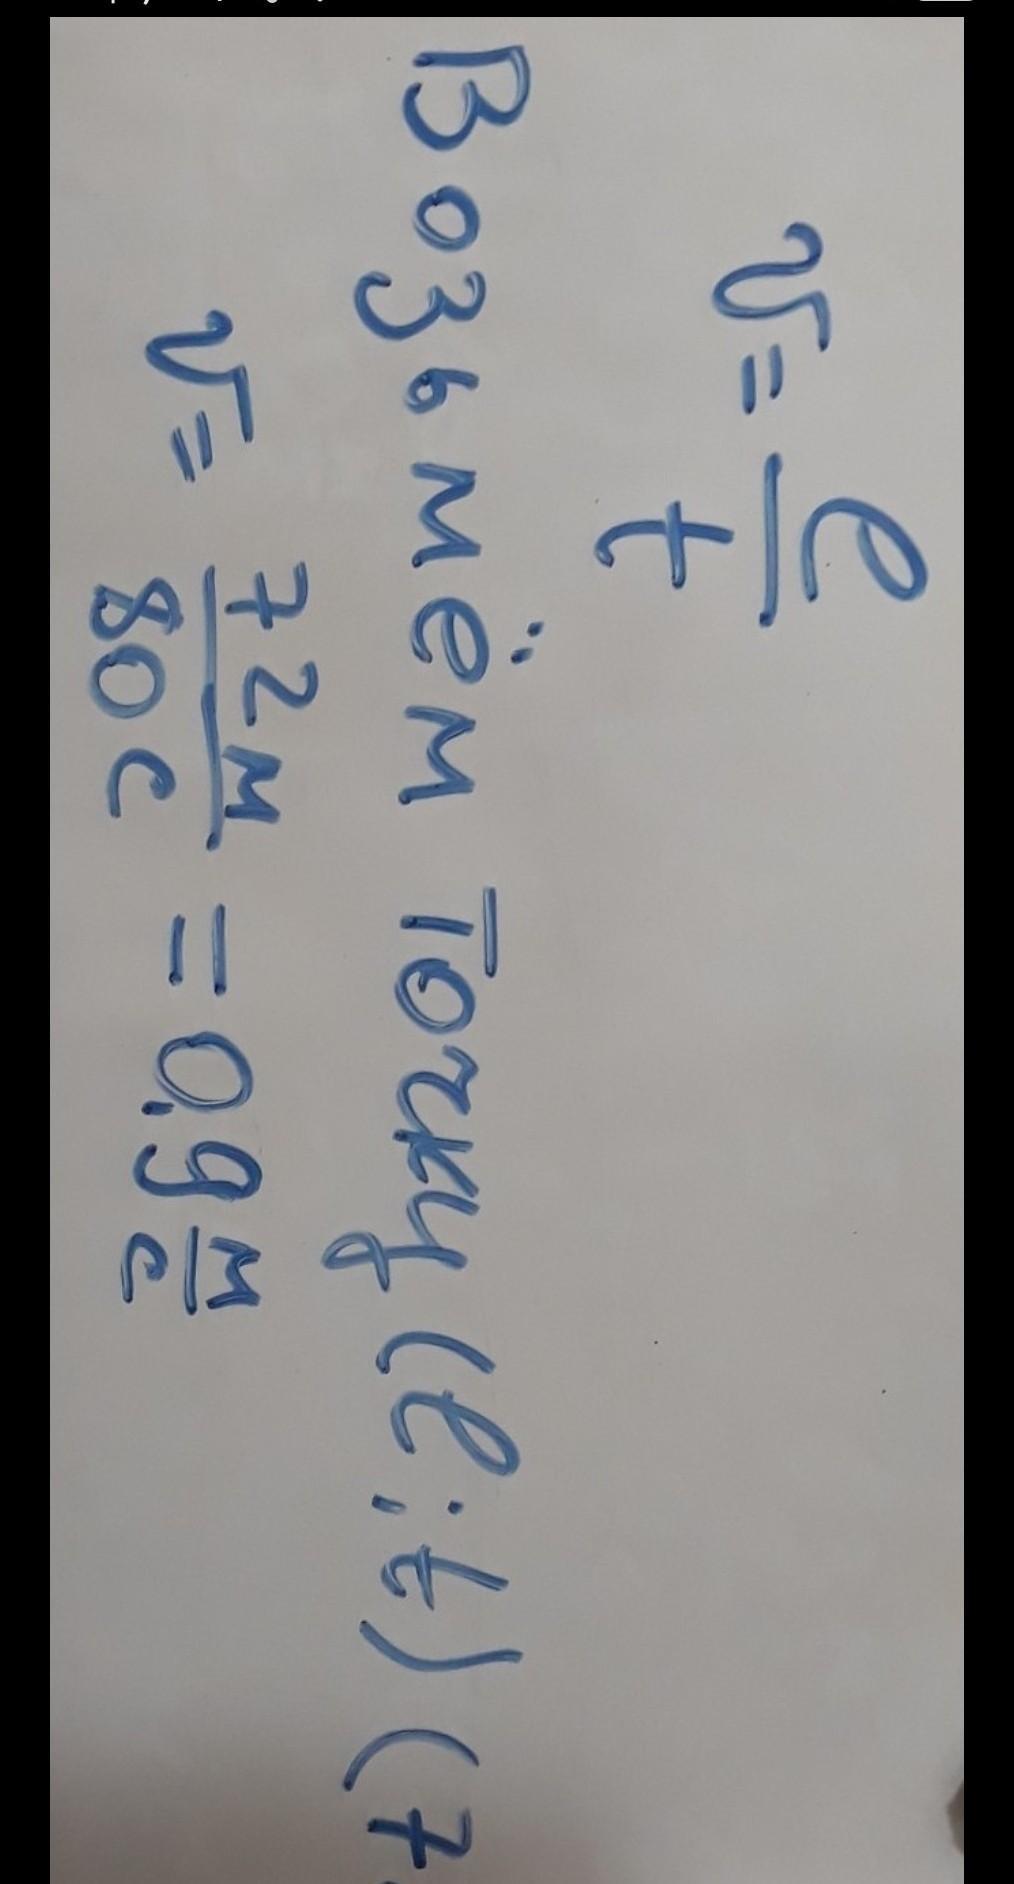 v = l/t
Возьмём Точку (l; t) (7
v = 72м/80с = 0,9 м/с